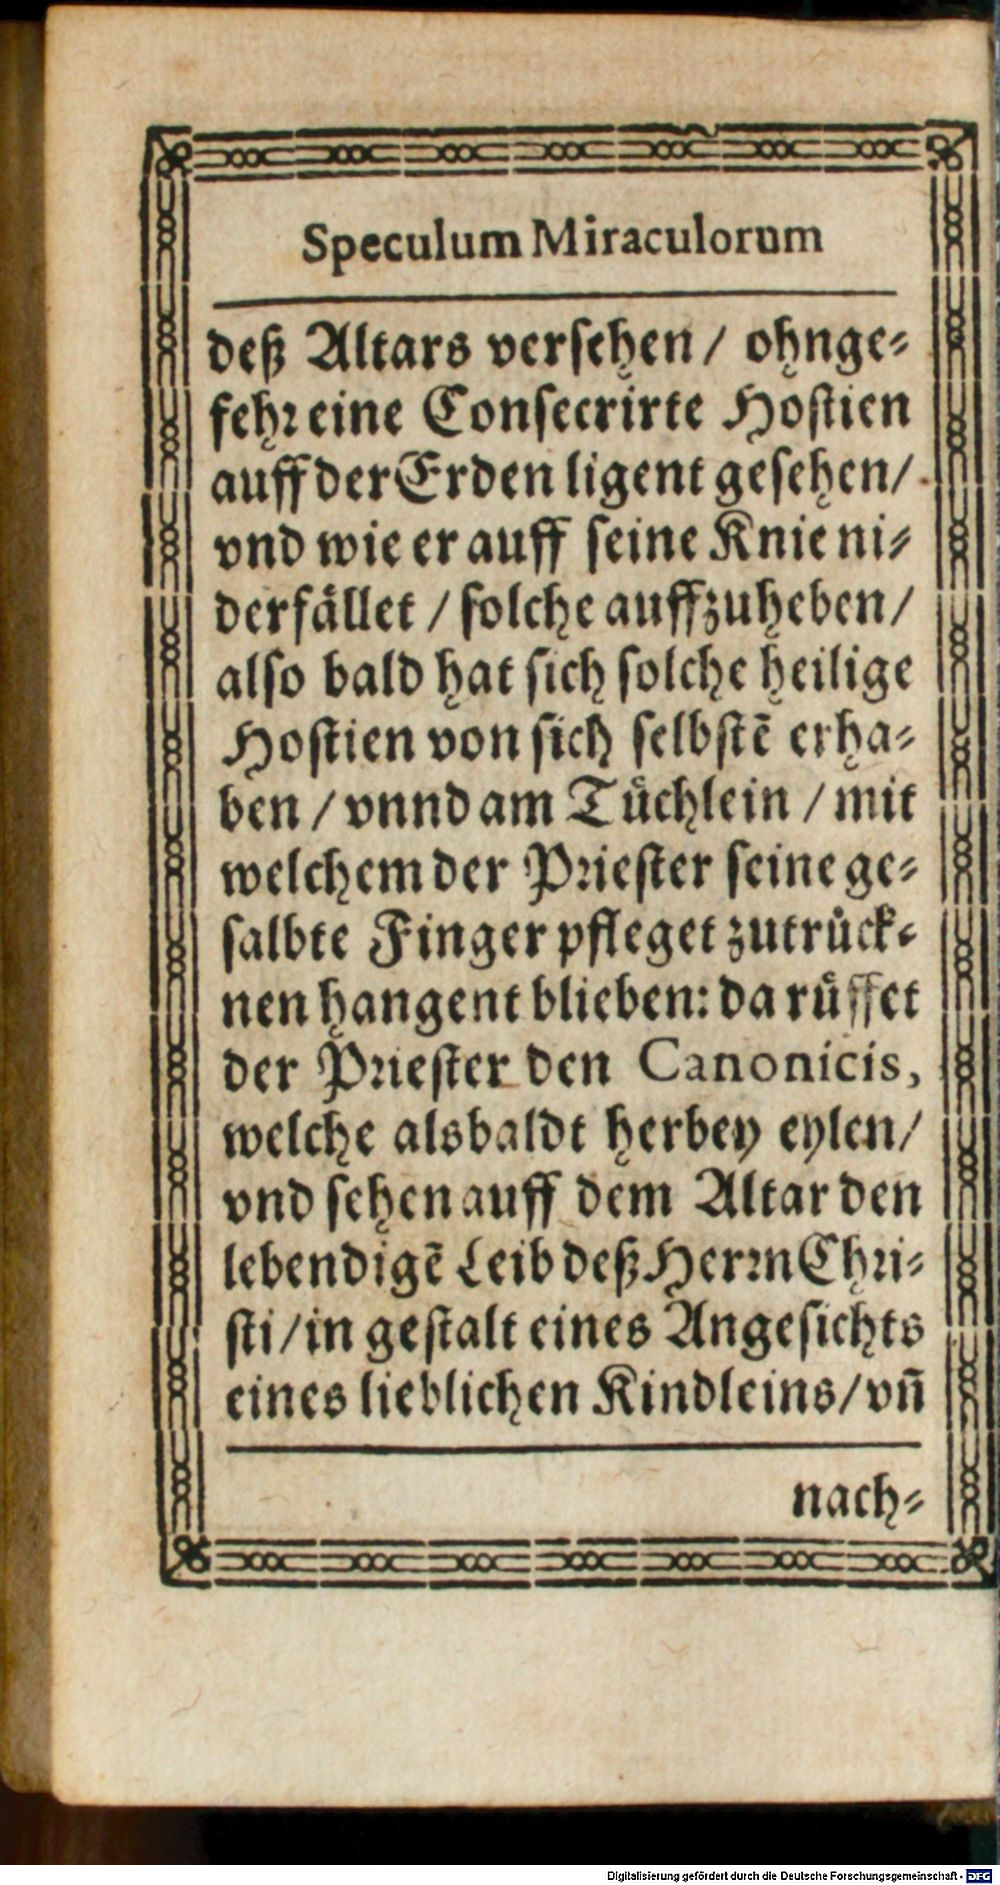 Speculum Miraculorum
deß Altars versehen/ ohnge-
fehr eine Consecrirte Hostien
auff der Erden ligent gesehen/
vnd wie er auff seine Knie ni-
derfället / solche auffzuheben/
also bald hat sich solche heilige
Hostien von sich selbstē erha-
ben / vnnd am Tüchlein / mit
welchem der Priester seine ge-
salbte Finger pfleget zutrück-
nen hangent blieben: da rüffet
der Priester den Canonicis,
welche alsbaldt herbey eylen/
vnd sehen auff dem Altar den
lebendigē Leib deß Herrn Chri-
sti/in gestalt eines Angesichts
eines lieblichen Kindleins/vn̄
nach-
Digitalisierung gefördert durch die Deutsche Forschungsgemeinschaft - DFG